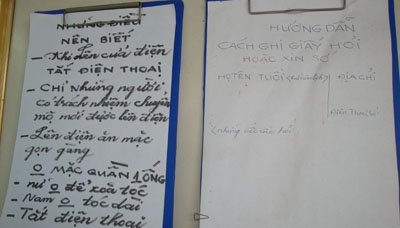 NHỮNG ĐIỀU
NÊN BIẾT
- Khi lên cửa điện
TẮT ĐIỆN THOẠI
- CHỈ những người
có trách nhiệm chuyên
mô mới được lên điện
- Lên điện ăn mặc
gọn gàng
O MẶC QUẦN LỐNG
- nữ O để xoã tóc
- Nam O tóc dài
- Tắt điện thoại
HƯỚNG DẪN
CÁCH GHI GIẤY HỎI
HOẶC XIN SỐ
HỌ TÊN TUỔI ĐỊA CHỈ
Điện Thoại
những